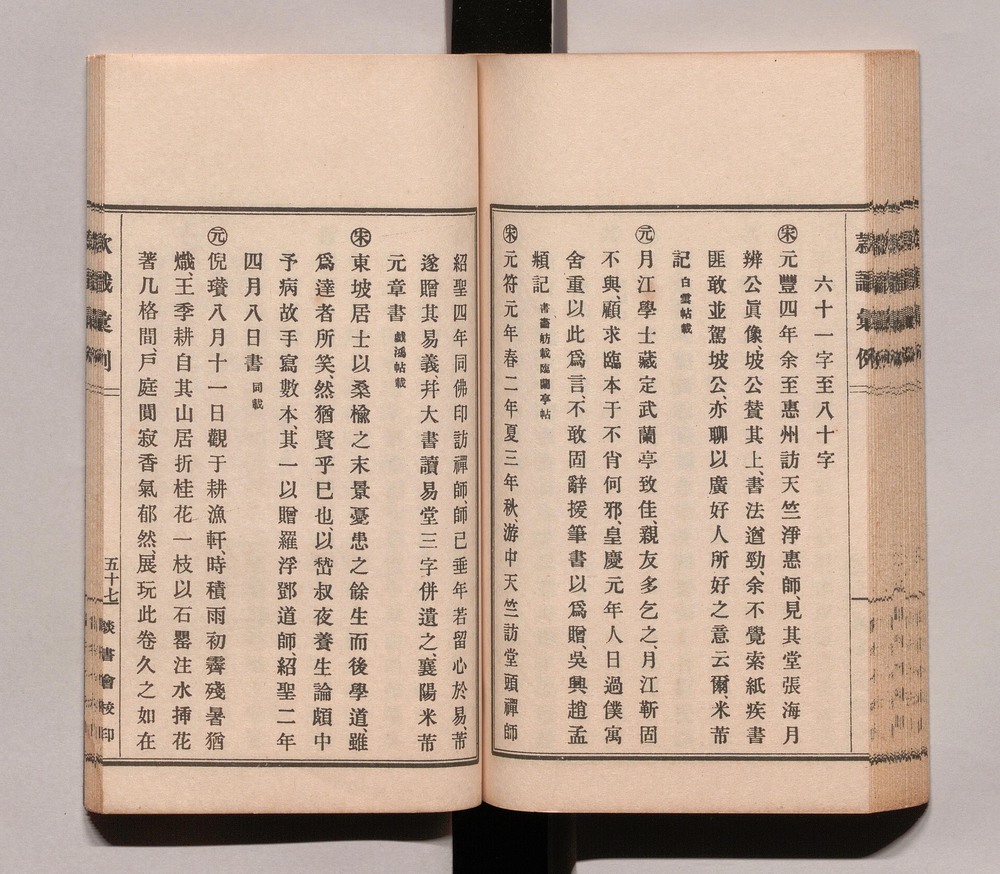 六十一字至八十字
宋元豐四年余至惠州訪天竺淨惠師、見其堂張海月
辨公眞像、坡公贊其上、書法遒勁、余不覺索紙疾書
匪敢並駕坡公、亦聊以廣好人所好之意云爾、米芾
記 白雲帖載
元月江學士藏定武蘭亭致佳、親友多乞之、月江靳固
不與、顧求臨本于不肖何邪、皇慶元年人日過僕寓
舍重以此爲言、不敢固辭援筆書以爲贈、吳興趙孟
頫記 書畵舫載臨蘭亭帖
宋元符元年春二年夏三年秋游中天竺訪堂頭禪師
紹聖四年同佛印訪禪師、師已垂年若留心於易、芾
遂贈其易義、幷大書讀易堂三字併遺之、襄陽米芾
元章書 戲鴻帖載
宋東坡居士以桑楡之末景憂患之餘生而後學道、雖
爲達者所笑、然猶賢乎已也、以嵆叔夜養生論頗中
予病故手寫數本、其一以贈羅浮鄧道師、紹聖二年
四月八日書 同載
元倪瓚八月十一日觀于耕漁軒、時積雨初霽殘暑猶
熾、王季耕自其山居折桂花一枝以石罌注水揷花
著几格間、戶庭閴寂香氣郁然、展玩此卷久之如在
五十七
談書會校印